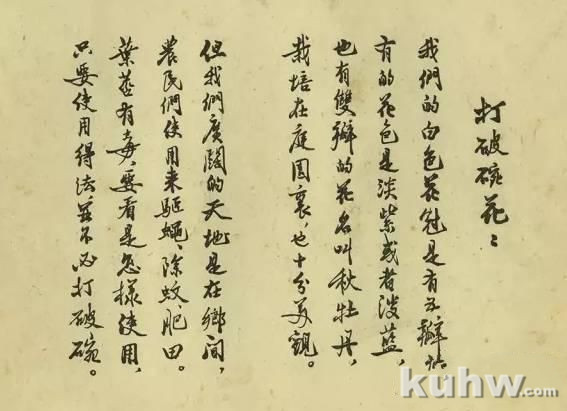 打破碗花〻
我們的白色花冠是有五瓣
有的花色是淡紫或者淺藍，
也有雙瓣的花名叫秋牡丹，
栽培在庭園裏，也十分美觀。
但我們廣闊的天地是在鄉間，
農民們使用來驅蠅、除蚊、肥田。
葉莖有毒，要看是怎樣使用，
只要使用得法並不必打破碗。
kuhw.com